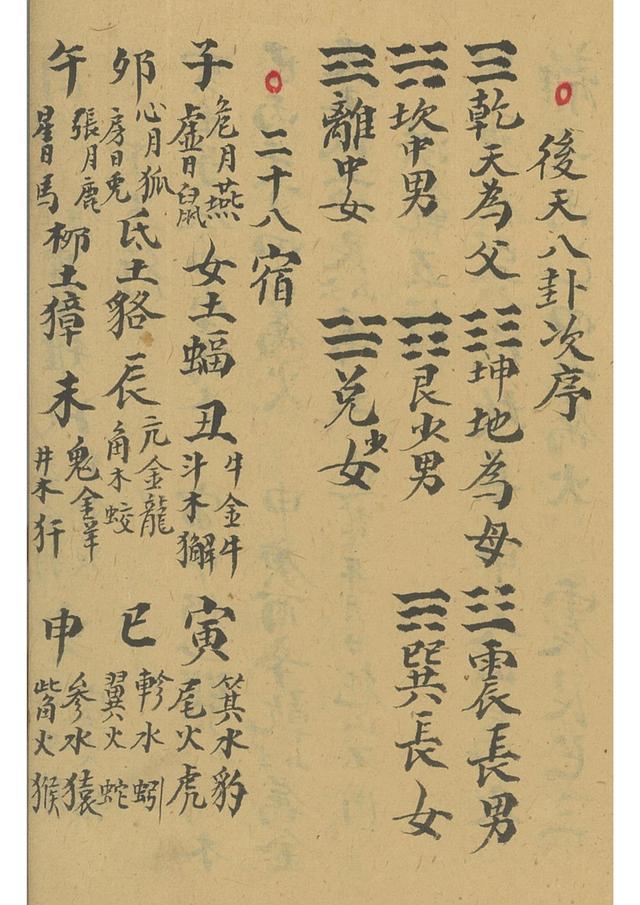 後天八卦次序
☰乾天為父 ☷坤地為母 ☳震長男
☵坎中男 ☶艮少男 ☴巽長女
☲離中女 ☱兌少女
二十八宿
子 危月燕 虛日鼠 女土蝠 丑 牛金牛 斗木獬 寅 箕水豹 尾火虎
夘 心月狐 房日兎 氐土貉 辰 亢金龍 角木蛟 巳 軫水蚓 翼火蛇
午 張月鹿 星日馬 柳土獐 未 鬼金羊 井木犴 申 參水猿 觜火猴